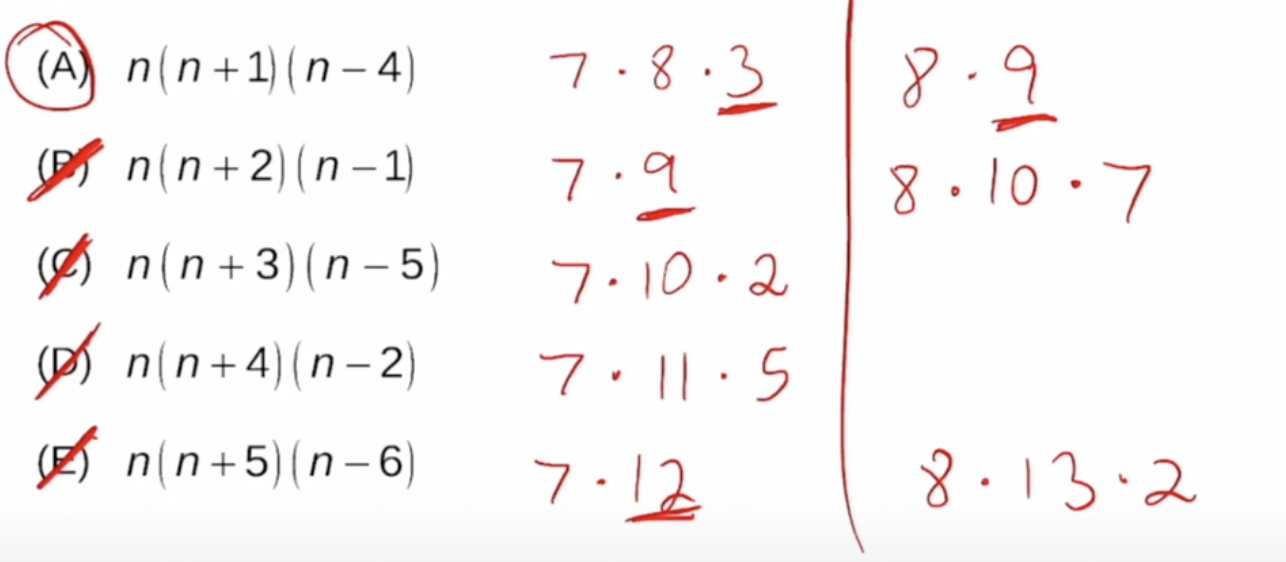 (A) n(n+1)(n−4) 7·8·3 8·9
(B) n(n+2)(n−1) 7·9 8·10·7
(C) n(n+3)(n−5) 7·10·2
(D) n(n+4)(n−2) 7·11·5
(E) n(n+5)(n−6) 7·12 8·13·2